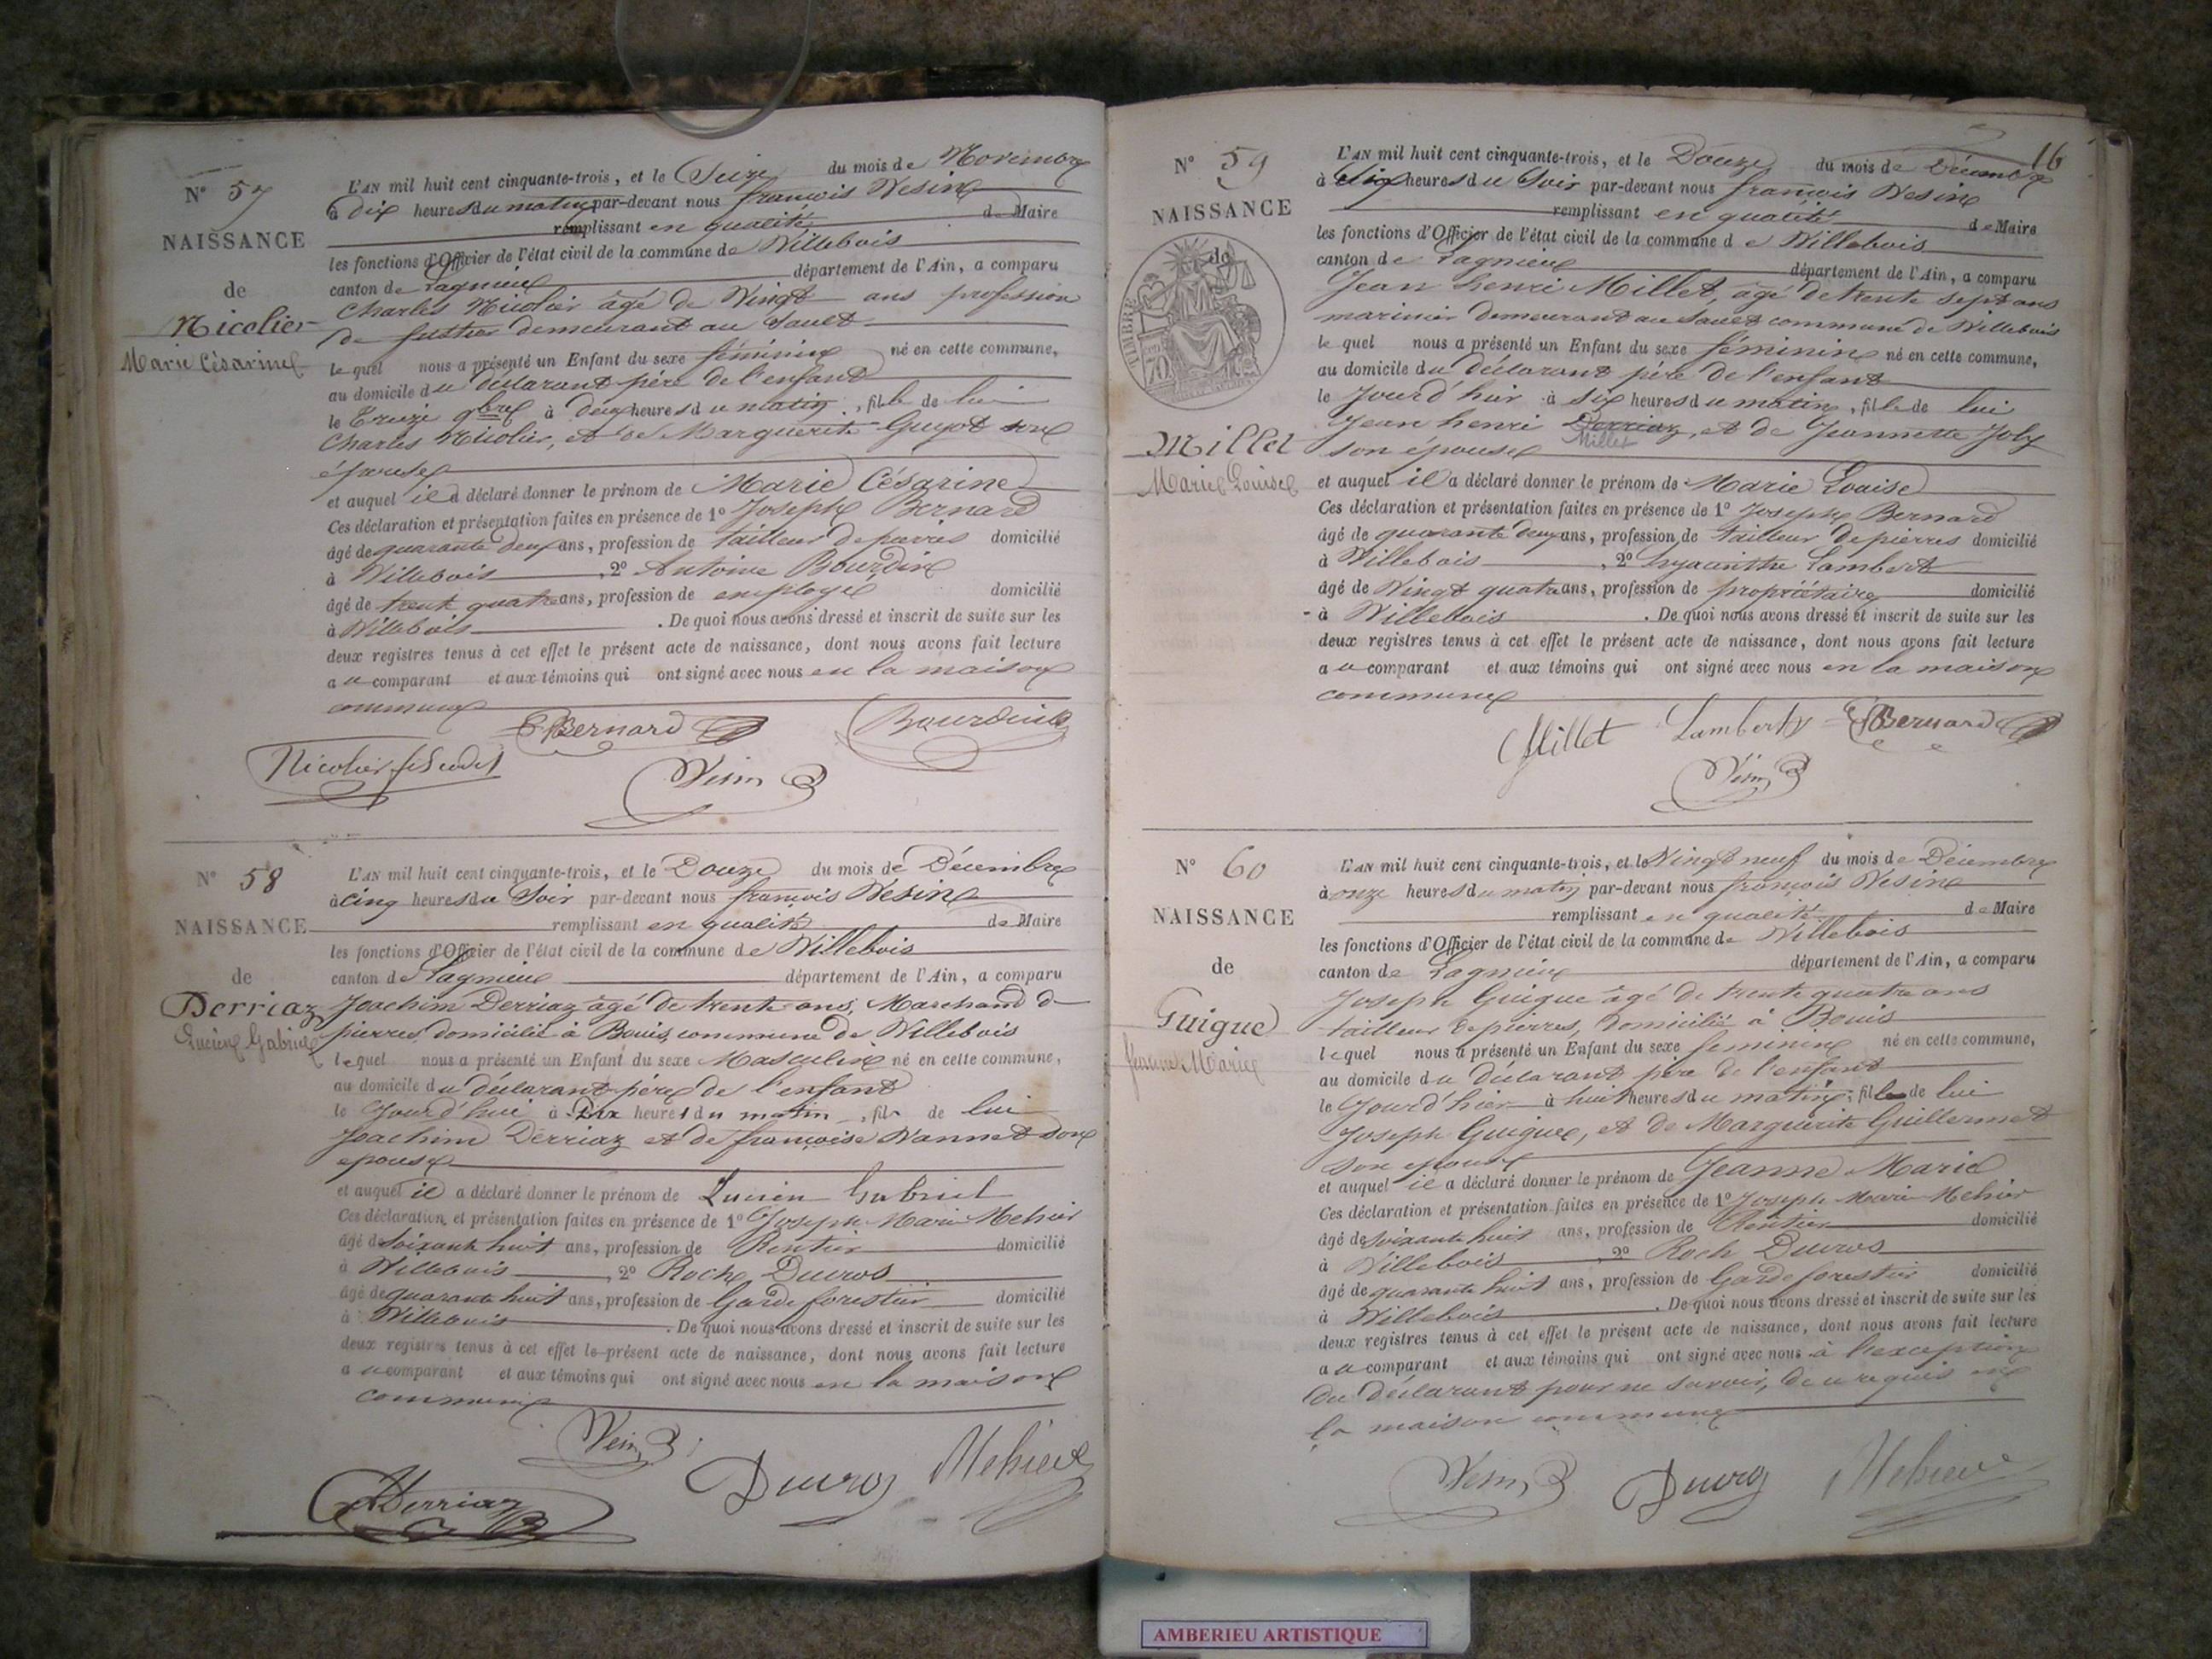 N° 57
NAISSANCE
de
Nicolier
Marie Césarine
L'AN mil huit cent cinquante-trois, et le Seize du mois de Novembre
à dix heures du matin par-devant nous françois Vesin
remplissant en qualité de Maire
les fonctions d'Officier de l'état civil de la commune de Villebois
canton de Lagnieu département de l'Ain, a comparu
Charles Nicolier âgé de Vingt ans profession
de demeurant au Sault
lequel nous a présenté un Enfant du sexe féminin né en cette commune,
au domicile du déclarant père de l'enfant
le Treize 9bre à deux heures du matin, fille de lui
Charles Nicolier, et de Marguerite Guyot son
épouse
et auquel il a déclaré donner le prénom de Marie Césarine
Ces déclaration et présentation faites en présence de 1° Joseph Bernard
âgé de quarante deux ans, profession de tailleur de pierres domicilié
à Villebois, 2° Antoine Bourdin
âgé de trente quatre ans, profession de employé domicilié
à Villebois. De quoi nous avons dressé et inscrit de suite sur les
deux registres tenus à cet effet le présent acte de naissance, dont nous avons fait lecture
au comparant et aux témoins qui ont signé avec nous en la maison
commune
Bernard Bourdin
Nicolier
Vesin
N° 58
NAISSANCE
de
Derriaz
Lucien Gabriel
L'AN mil huit cent cinquante-trois, et le Douze du mois de Décembre
à Cinq heures du Soir par-devant nous françois Vesin
remplissant en qualité de Maire
les fonctions d'Officier de l'état civil de la commune de Villebois
canton de Lagnieu département de l'Ain, a comparu
Joachim Derriaz âgé de trente ans, Marchand de
pierres, domicilié à Bouis, commune de Villebois
lequel nous a présenté un Enfant du sexe Masculin né en cette commune,
au domicile du déclarant père de l'enfant
le Jourd'hui à Dix heures du matin, fils de lui
Joachim Derriaz et de françoise Vannet son
epouse
et auquel il a déclaré donner le prénom de Lucien Gabriel
Ces déclaration et présentation faites en présence de 1° Joseph Marie Mehier
âgé de Soixante huit ans, profession de Rentier domicilié
à Villebois, 2° Roch Ducros
âgé de quarante huit ans, profession de Garde forestier domicilié
à Villebois. De quoi nous avons dressé et inscrit de suite sur les
deux registres tenus à cet effet le présent acte de naissance, dont nous avons fait lecture
au comparant et aux témoins qui ont signé avec nous en la maison
commune
Vesin
Derriaz Ducros Mehier
16
N° 59
NAISSANCE
de
TIMBRE
70
Millet
Marie Louise
L'AN mil huit cent cinquante-trois, et le Douze du mois de Décembre
à Six heures du Soir par-devant nous françois Vesin
remplissant en qualité de Maire
les fonctions d'Officier de l'état civil de la commune de Villebois
canton de Lagnieu département de l'Ain, a comparu
Jean henri Millet, âgé de trente sept ans
marinier demeurant au Sault commune de Villebois
lequel nous a présenté un Enfant du sexe féminin né en cette commune,
au domicile du déclarant père de l'enfant
le Jourd'hui à six heures du matin, fille de lui
Jean henri Derriaz, et de Jeannette Joly
Millet
son épouse
et auquel il a déclaré donner le prénom de Marie Louise
Ces déclaration et présentation faites en présence de 1° Joseph Bernard
âgé de quarante deux ans, profession de tailleur de pierres domicilié
à Villebois, 2° hyacinthe Lambert
âgé de Vingt quatre ans, profession de propriétaire domicilié
à Villebois. De quoi nous avons dressé et inscrit de suite sur les
deux registres tenus à cet effet le présent acte de naissance, dont nous avons fait lecture
au comparant et aux témoins qui ont signé avec nous en la maison
commune
Millet Lambert Bernard
Vesin
N° 60
NAISSANCE
de
Guigue
Jeanne Marie
L'AN mil huit cent cinquante-trois, et le Vingt neuf du mois de Décembre
à onze heures du matin par-devant nous françois Vesin
remplissant en qualité de Maire
les fonctions d'Officier de l'état civil de la commune de Villebois
canton de Lagnieu département de l'Ain, a comparu
Joseph Guigue âgé de trente quatre ans
tailleur de pierres, domicilié à Bouis
lequel nous a présenté un Enfant du sexe feminin né en cette commune,
au domicile du déclarant père de l'enfant
le Jourd'hier à huit heures du matin, fille de lui
Joseph Guigue, et de Marguerite Guillermet
son epouse
et auquel il a déclaré donner le prénom de Jeanne Marie
Ces déclaration et présentation faites en présence de 1° Joseph Marie Mehier
âgé de soixante huit ans, profession de Rentier domicilié
à Villebois, 2° Roch Ducros
âgé de quarante huit ans, profession de Garde forestier domicilié
à Villebois. De quoi nous avons dressé et inscrit de suite sur les
deux registres tenus à cet effet le présent acte de naissance, dont nous avons fait lecture
au comparant et aux témoins qui ont signé avec nous à l'exception
du déclarant pour ne savoir, de ce requis en
la maison commune
Vesin Ducros Mehier
AMBERIEU ARTISTIQUE